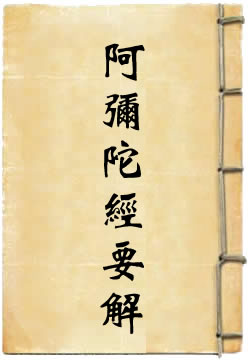 阿彌陀經要解